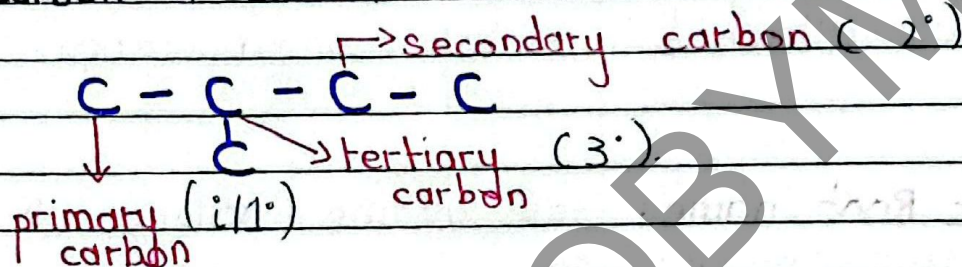 →secondary carbon (2°)
C - C - C - C
C →tertiary (3°).
carbon
primary (i/1°)
carbon